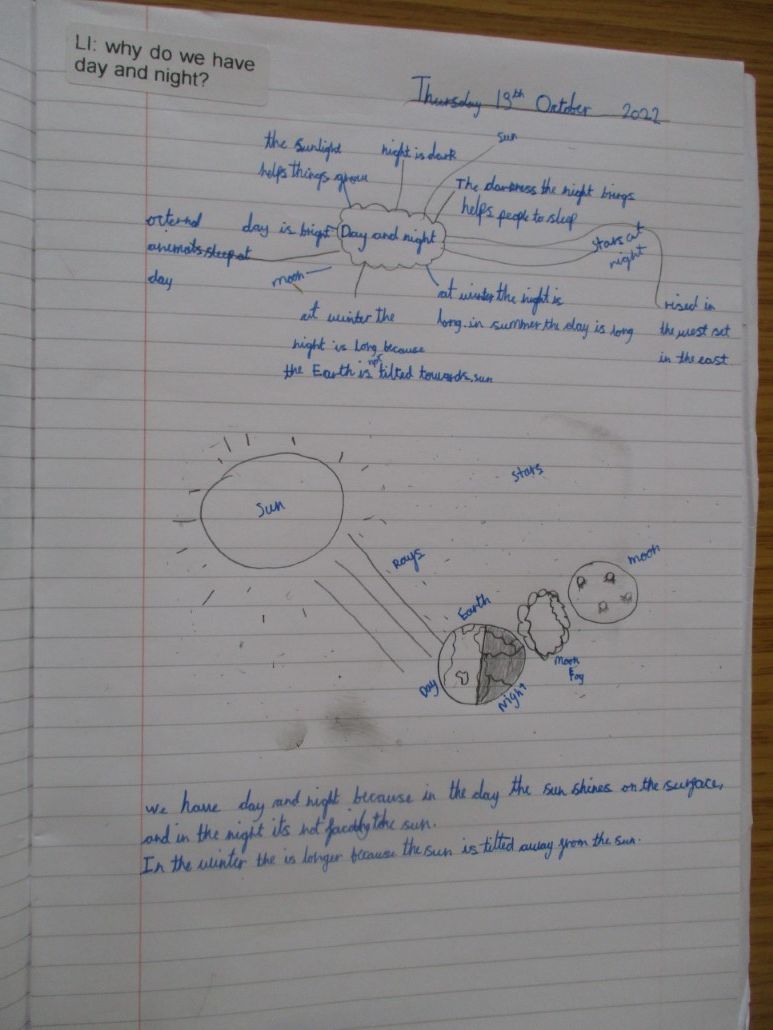 LI: why do we have
day and night?
Thursday 19th October 2022
the sunlight
helps things grow
night is dark
sun
The darkness the night brings
helps people to sleep
day is bright
Day and night
stars at
night
animals sleep at
day
moon
at winter the
night is long because
the Earth is not tilted towards sun
at winter the night is
long. in summer the day is long
rised in
the west set
in the east
stars
Sun
Rays
moon
Earth
Moon
Day
Night
we have day and night because in the day the sun shines on the surface,
and in the night its not facing the sun.
In the winter the is longer because the sun is tilted away from the sun.